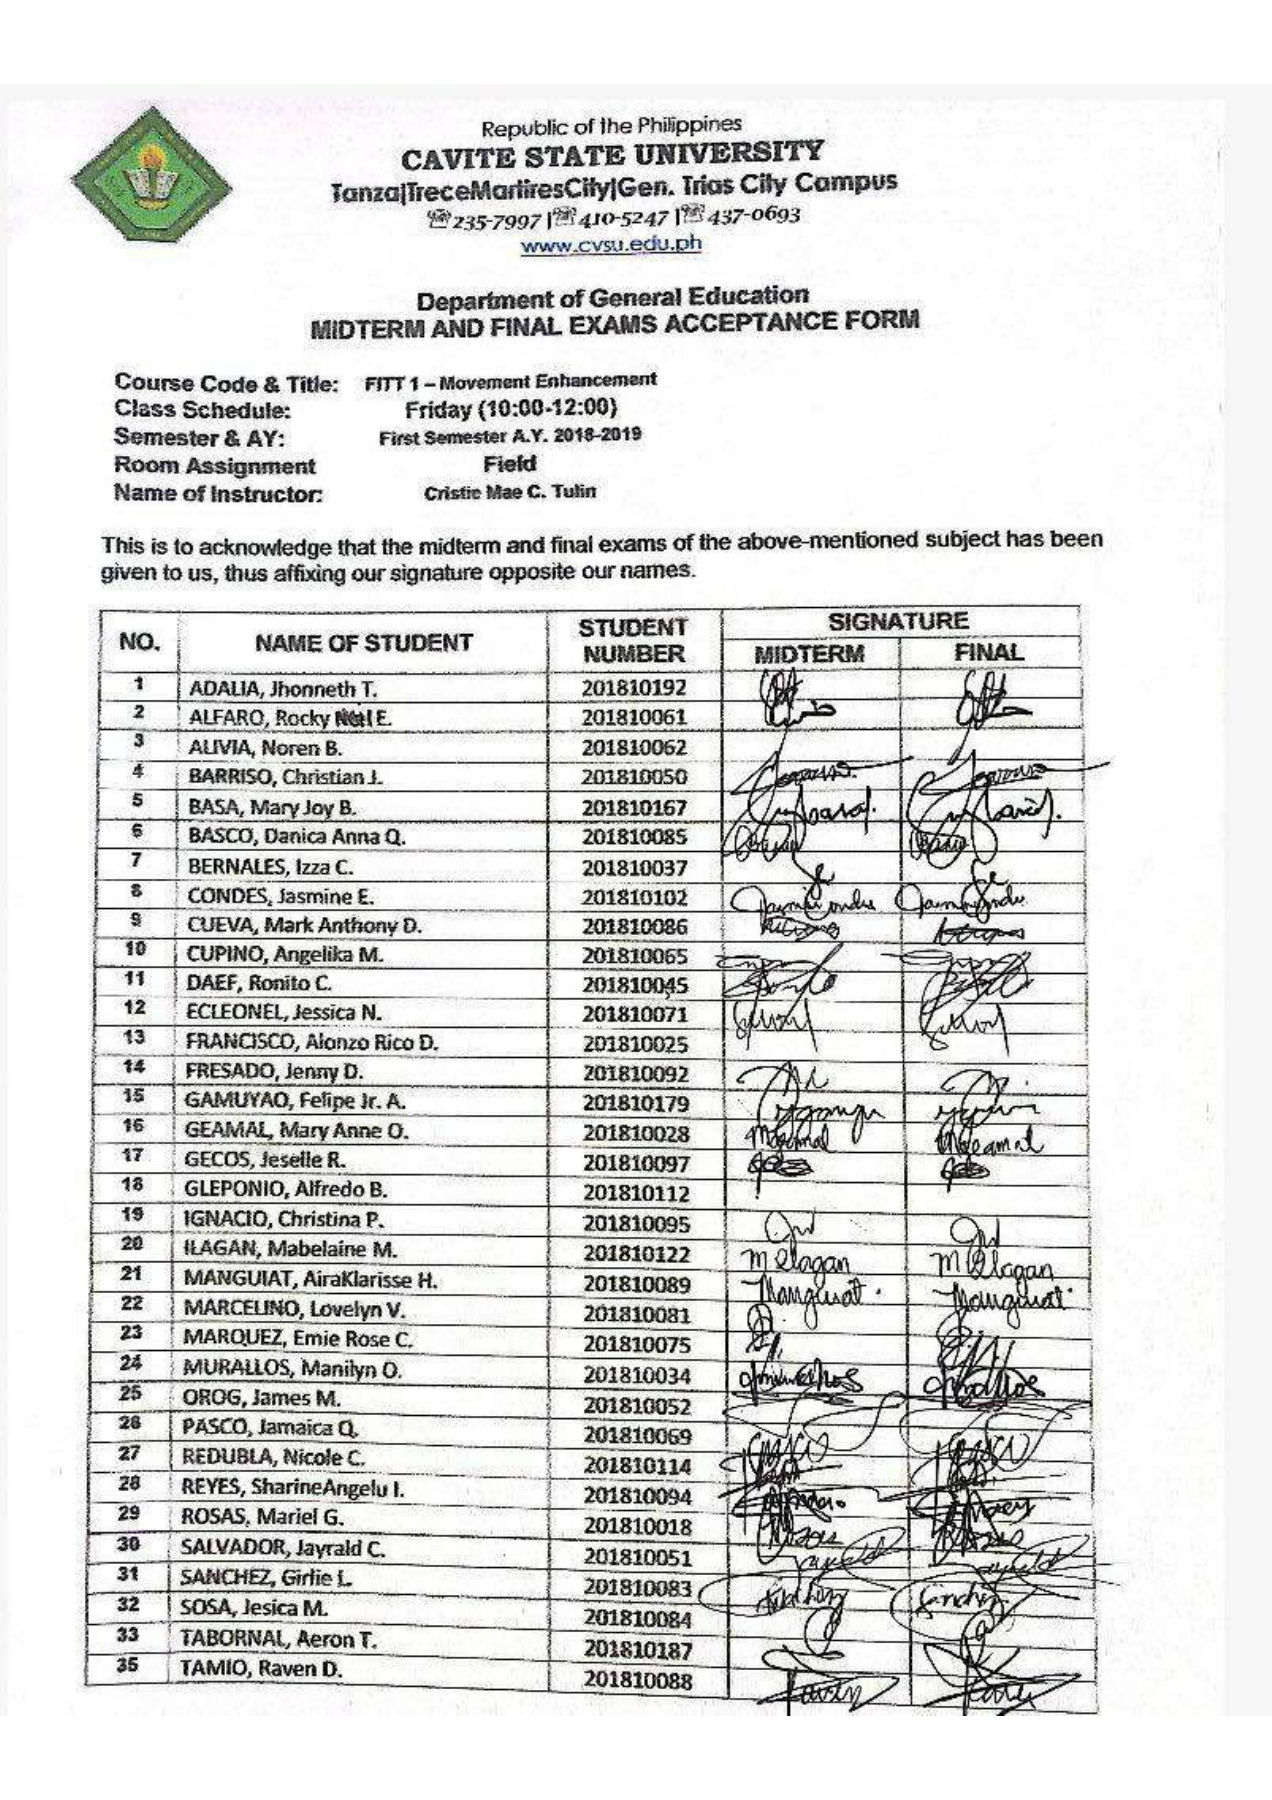 Republic of the Philippines
CAVITE STATE UNIVERSITY
Tanza|TreceMartiresCity|Gen. Trias City Campus
☏235-7997 |☏410-5247 |☏437-0693
www.cvsu.edu.ph
Department of General Education
MIDTERM AND FINAL EXAMS ACCEPTANCE FORM
Course Code & Title: FITT 1 – Movement Enhancement
Class Schedule: Friday (10:00-12:00)
Semester & AY: First Semester A.Y. 2018-2019
Room Assignment Field
Name of Instructor: Cristie Mae C. Tulin
This is to acknowledge that the midterm and final exams of the above-mentioned subject has been
given to us, thus affixing our signature opposite our names.
NO. NAME OF STUDENT STUDENT NUMBER SIGNATURE
MIDTERM FINAL
1 ADALIA, Jhonneth T. 201810192
2 ALFARO, Rocky Neil E. 201810061
3 ALIVIA, Noren B. 201810062
4 BARRISO, Christian J. 201810050
5 BASA, Mary Joy B. 201810167
6 BASCO, Danica Anna Q. 201810085
7 BERNALES, Izza C. 201810037
8 CONDES, Jasmine E. 201810102
9 CUEVA, Mark Anthony D. 201810086
10 CUPINO, Angelika M. 201810065
11 DAEF, Ronito C. 201810045
12 ECLEONEL, Jessica N. 201810071
13 FRANCISCO, Alonzo Rico D. 201810025
14 FRESADO, Jenny D. 201810092
15 GAMUYAO, Felipe Jr. A. 201810179
16 GEAMAL, Mary Anne O. 201810028
17 GECOS, Jeselle R. 201810097
18 GLEPONIO, Alfredo B. 201810112
19 IGNACIO, Christina P. 201810095
20 ILAGAN, Mabelaine M. 201810122
21 MANGUIAT, AiraKlarisse H. 201810089
22 MARCELINO, Lovelyn V. 201810081
23 MARQUEZ, Emie Rose C. 201810075
24 MURALLOS, Manilyn O. 201810034
25 OROG, James M. 201810052
26 PASCO, Jamaica Q. 201810069
27 REDUBLA, Nicole C. 201810114
28 REYES, SharineAngelu I. 201810094
29 ROSAS, Mariel G. 201810018
30 SALVADOR, Jayrald C. 201810051
31 SANCHEZ, Girlie L. 201810083
32 SOSA, Jesica M. 201810084
33 TABORNAL, Aeron T. 201810187
35 TAMIO, Raven D. 201810088